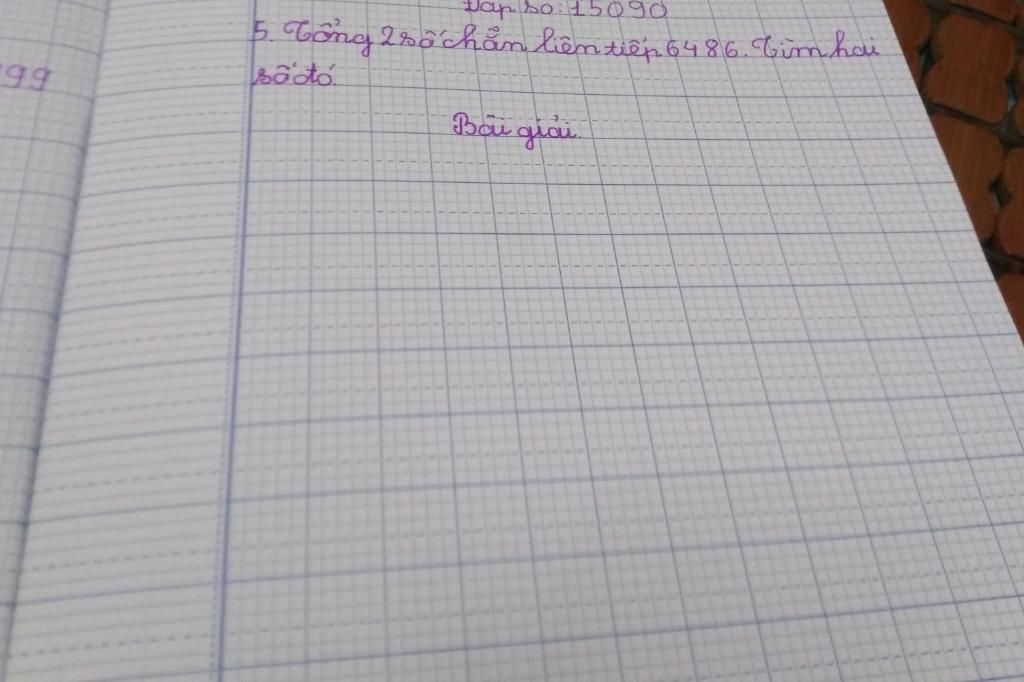 Đáp số: 15090
5. Tổng 2 số chẵn liên tiếp 6486. Tìm hai
số đó.
99
Bài giải